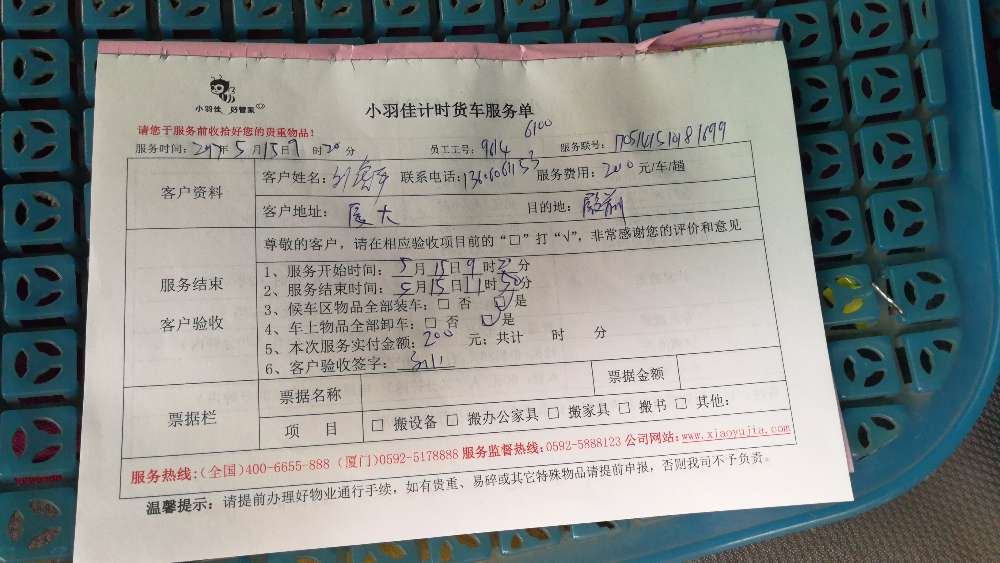 小羽佳 好管家
小羽佳计时货车服务单
请您于服务前收拾好您的贵重物品！
服务时间： 年 5 月 15 日 9 时 20 分 员工工号：9614 6100 服务联号：
客户资料
客户姓名： 联系电话： 服务费用：200 元/车/趟
客户地址：厦大 目的地：殿前
服务结束
客户验收
尊敬的客户，请在相应验收项目前的“□”打“√”，非常感谢您的评价和意见
1、服务开始时间：5月15日9时 分
2、服务结束时间：5月15日11时50分
3、候车区物品全部装车：□ 否 □是
4、车上物品全部卸车：□ 否 □是
5、本次服务实付金额：200 元；共计 时 分
6、客户验收签字：
票据栏
票据名称 票据金额
项 目 □ 搬设备 □ 搬办公家具 □ 搬家具 □ 搬书 □ 其他：
服务热线：（全国）400-6655-888（厦门）0592-5178888 服务监督热线：0592-5888123 公司网站：www.xiaoyujia.com
温馨提示：请提前办理好物业通行手续，如有贵重、易碎或其它特殊物品请提前申报，否则我司不予负责。